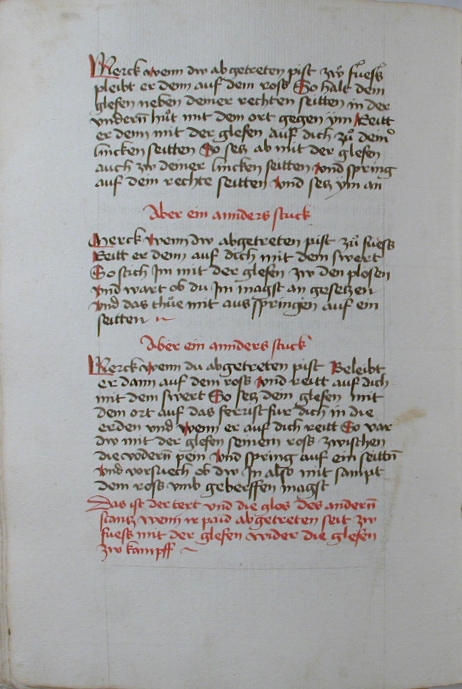 Merck wenn dw ab getreten pist zw̋ fuess
pleibt er dem auf dem ross So halt dem
glefen neben deiner rechten seitten in der
vndern̄ hůt mit dem ort gegen ym Reitt
er dem mit der glefen auf dich zů demᵒ
lincken seitten So setz ab mit der glefen
auch zw deiner lincken seitten vnd spring
auf dem rechte seitten vnd setz ym an
Aber ein annders stuck
Merck wenn dw abgetreten pist zů fuess
Reitt er dem auf dich mit dem swert
So stich Jm mit der glefen zw den plosen
vnd wart ob du Jm magst an gesetzen
vnd das thůe mit aus springen auf ein
seitten
Aber ein annders stuck
Merck wenn du abgetreten pist Beleibt
er dann auf dem ross vnd reitt auf dich
mit dem swert So setz dem glefen mit
dem ort auf das ferrist fur dich in die
erden vnd wenn er auf dich reitt So var
dw mit der glefen seinem ross zwischen
die vodern̄ pein vnd spring auf ein seittn̄
vnd vorsuech ob dw Jn also mit sampt
dem ross vmb geberffen magst
Das ist der text vnd die glos des andern̄
stantz wenn ir paid abgetreten seit zw
fuess mit der glefen wider die glefen
zw kampff